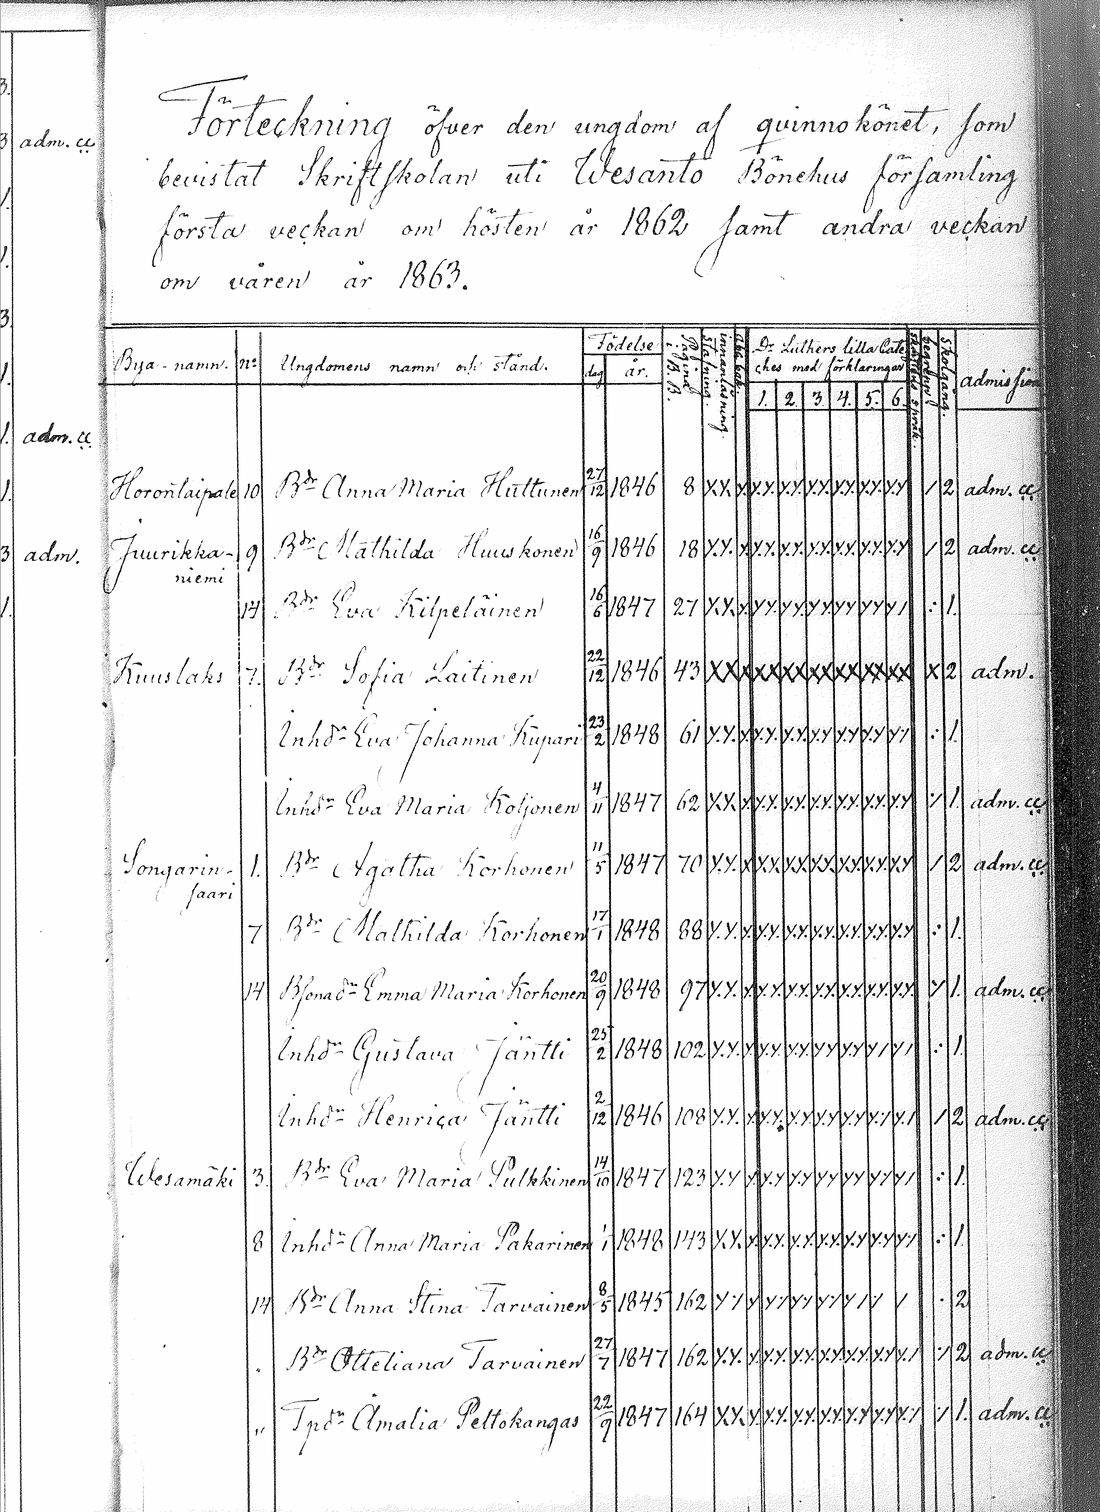 Förteckning öfver den ungdom af qvinnokönet, som
bevistat Skriftskolan uti Wesanto Bönehus församling
första veckan om hösten år 1862 samt andra veckan
om våren år 1863.
Bya-namn. No Ungdomens namn och stånd. Födelse dag år. Pagina i B.B. innanläsning stafning. abc bok. Dr Luthers lilla Cate-
ches med förklaringar 1. 2. 3. 4. 5. 6. begrepp. skolgång. admission
Horonlaipale 10 Bdr Anna Maria Huttunen 27/12 1846 8 2 adm. cc
Juurikka- 9 Bdr Mathilda Huuskonen 16/9 1846 18 2 adm. cc
niemi
14 Bdr Eva Kilpeläinen 16/6 1847 27 1.
Kuuslaks 7. Bdr Sofia Laitinen 22/12 1846 43 2 adm.
Inhdr Eva Johanna Kupari 23/2 1848 61 1.
Inhdr Eva Maria Koljonen 4/11 1847 62 1. adm. cc
Songarin- 1. Bdr Agatha Korhonen 11/5 1847 70 2 adm. cc
saari
7 Bdr Mathilda Korhonen 17/1 1848 88 1.
14 Bsonadr Emma Maria Korhonen 20/9 1848 97 1. adm. cc
Inhdr Gustava Jäntti 25/2 1848 102 1.
Inhdr Henrica Jäntti 2/12 1846 108 2 adm. cc
Wesamäki 3. Bdr Eva Maria Pulkkinen 14/10 1847 123 1.
8 Inhdr Anna Maria Pakarinen 1/1 1848 143 1.
14 Bdr Anna Stina Tarvainen 8/5 1845 162 2
Bdr Otteliana Tarvainen 27/7 1847 162 2 adm. cc
„ Tpdr Amalia Peltokangas 22/9 1847 164 1. adm. cc
3.
3 adm. cc
1.
1.
3.
1.
1. adm. cc
1.
3 adm.
1.